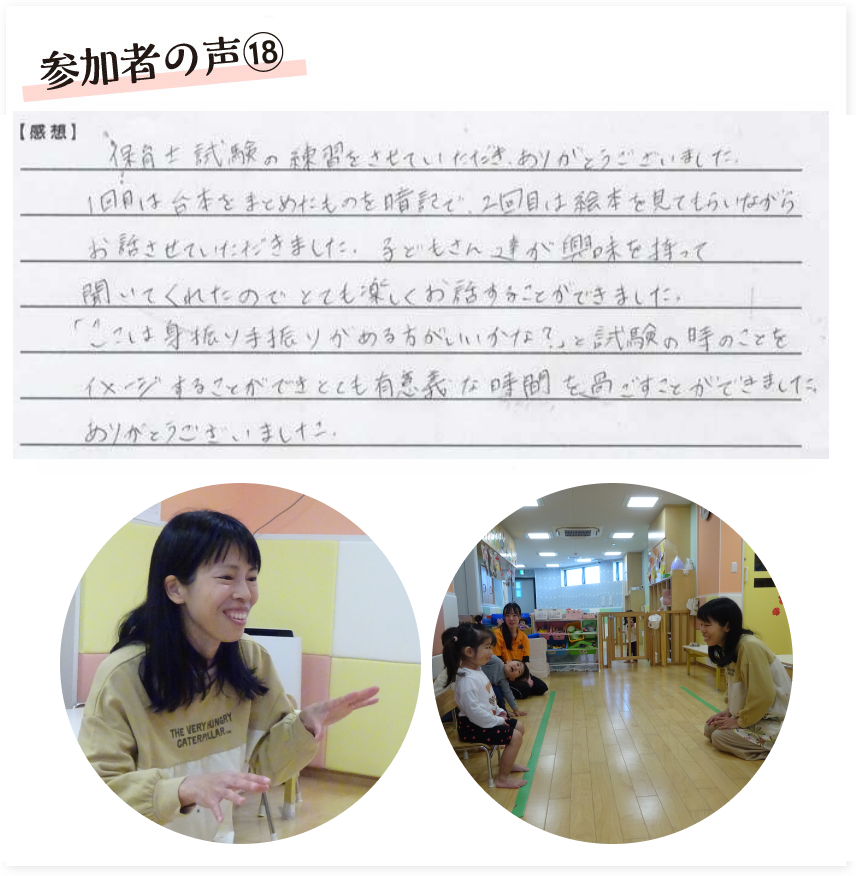 参加者の声⑱
【感想】
保育士試験の練習をさせていただき、ありがとうございました。
1回目は台本をまとめたものを暗記で、2回目は絵本を見てもらいながら
お話させていただきました。子どもさん達が興味を持って
聞いてくれたのでとても楽しくお話することができました。
「ここは身振り手振りがある方がいいかな?」と試験の時のことを
イメージすることができとても有意義な時間を過ごすことができました。
ありがとうございました。
THE VERY HUNGRY
CATERPILLAR